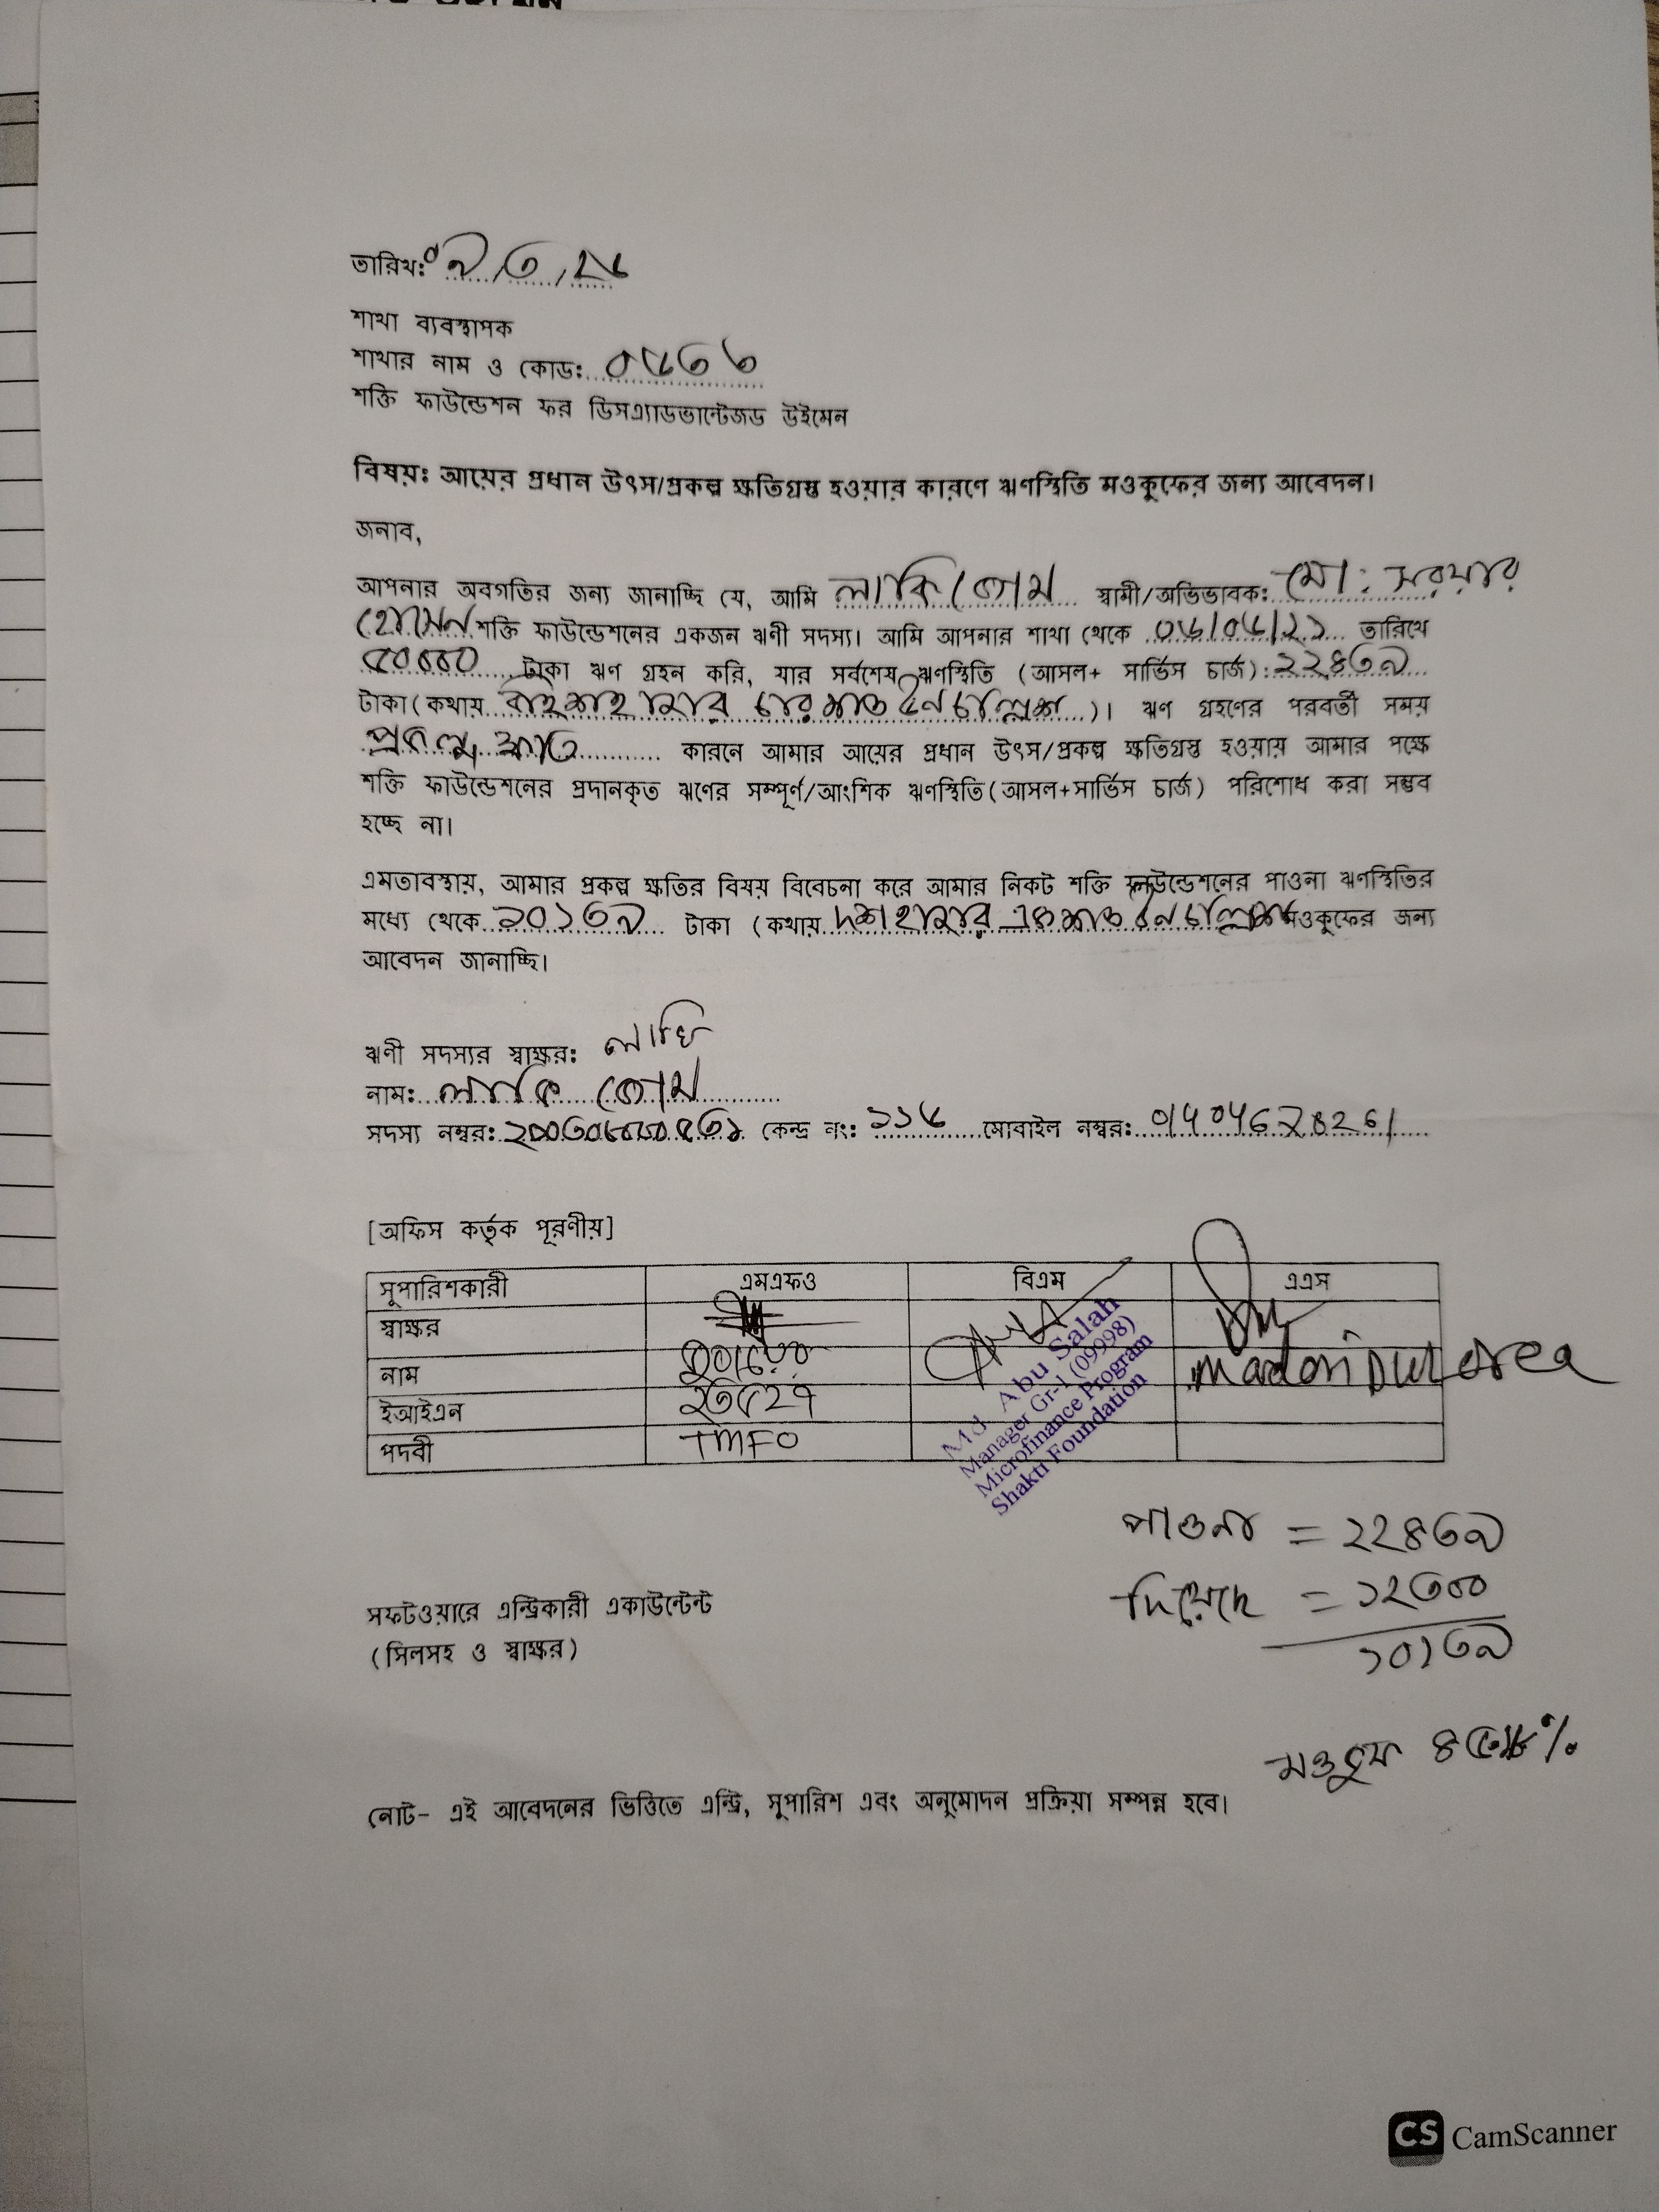 তারিখঃ
শাখা ব্যবস্থাপক
শাখার নাম ও কোডঃ ০৮৩৬
শক্তি ফাউন্ডেশন ফর ডিসএ্যাডভান্টেজড উইমেন
বিষয়ঃ আয়ের প্রধান উৎস/প্রকল্প ক্ষতিগ্রস্ত হওয়ার কারণে ঋণস্থিতি মওকুফের জন্য আবেদন।
জনাব,
আপনার অবগতির জন্য জানাচ্ছি যে, আমি লাকি বেগম স্বামী/অভিভাবক: মো:
হোসেন শক্তি ফাউন্ডেশনের একজন ঋণী সদস্য। আমি আপনার শাখা থেকে তারিখে
টাকা ঋণ গ্রহন করি, যার সর্বশেষ ঋণস্থিতি (আসল+ সার্ভিস চার্জ): ২২৪৩৯
টাকা(কথায় বাইশ হাজার চারশত উনচল্লিশ)। ঋণ গ্রহণের পরবর্তী সময়
প্রকল্প ক্ষতি কারনে আমার আয়ের প্রধান উৎস/প্রকল্প ক্ষতিগ্রস্ত হওয়ায় আমার পক্ষে
শক্তি ফাউন্ডেশনের প্রদানকৃত ঋণের সম্পূর্ণ/আংশিক ঋণস্থিতি(আসল+সার্ভিস চার্জ) পরিশোধ করা সম্ভব
হচ্ছে না।
এমতাবস্থায়, আমার প্রকল্প ক্ষতির বিষয় বিবেচনা করে আমার নিকট শক্তি ফাউন্ডেশনের পাওনা ঋণস্থিতির
মধ্যে থেকে ১০১৩৯ টাকা (কথায় দশ হাজার একশত উনচল্লিশ মওকুফের জন্য
আবেদন জানাচ্ছি।
ঋণী সদস্যর স্বাক্ষর: লাকি
নাম: লাকি বেগম
সদস্য নম্বর: কেন্দ্র নং: ১১৬ মোবাইল নম্বর:
[অফিস কর্তৃক পূরণীয়]
সুপারিশকারী এমএফও বিএম এএস
স্বাক্ষর
নাম
ইআইএন ২৩৫২৭
পদবী TMFO
Md Abu Salah
Manager Gr-1 (09998)
Microfinance Program
Shakti Foundation
area
পাওনা = ২২৪৩৯
দিয়েছে = ১২৩০০
১০১৩৯
সফটওয়ারে এন্ট্রিকারী একাউন্টেন্ট
(সিলসহ ও স্বাক্ষর)
মওকুফ
নোট- এই আবেদনের ভিত্তিতে এন্ট্রি, সুপারিশ এবং অনুমোদন প্রক্রিয়া সম্পন্ন হবে।
CS CamScanner